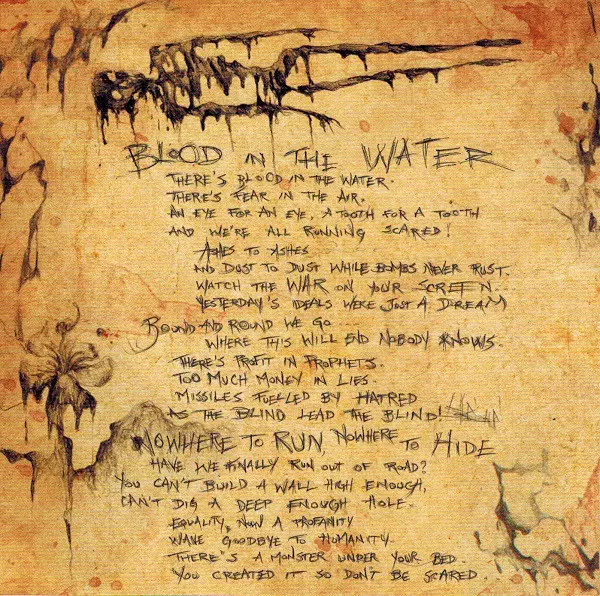 BLOOD IN THE WATER
THERE'S BLOOD IN THE WATER.
THERE'S FEAR IN THE AIR.
AN EYE FOR AN EYE, A TOOTH FOR A TOOTH
AND WE'RE ALL RUNNING SCARED!
ASHES TO ASHES
AND DUST TO DUST WHILE BOMBS NEVER TRUST.
WATCH THE WAR ON YOUR SCREEN...
YESTERDAY'S IDEALS WERE JUST A DREAM
ROUND AND ROUND WE GO...
WHERE THIS WILL END NOBODY KNOWS.
THERE'S PROFIT IN PROPHETS.
TOO MUCH MONEY IN LIES.
MISSILES FUELLED BY HATRED
AS THE BLIND LEAD THE BLIND!
NOWHERE TO RUN, NOWHERE TO HIDE
HAVE WE FINALLY RUN OUT OF ROAD?
YOU CAN'T BUILD A WALL HIGH ENOUGH,
CAN'T DIG A DEEP ENOUGH HOLE.
EQUALITY, NOW A PROFANITY
WAVE GOODBYE TO HUMANITY.
THERE'S A MONSTER UNDER YOUR BED.
YOU CREATED IT SO DON'T BE SCARED.